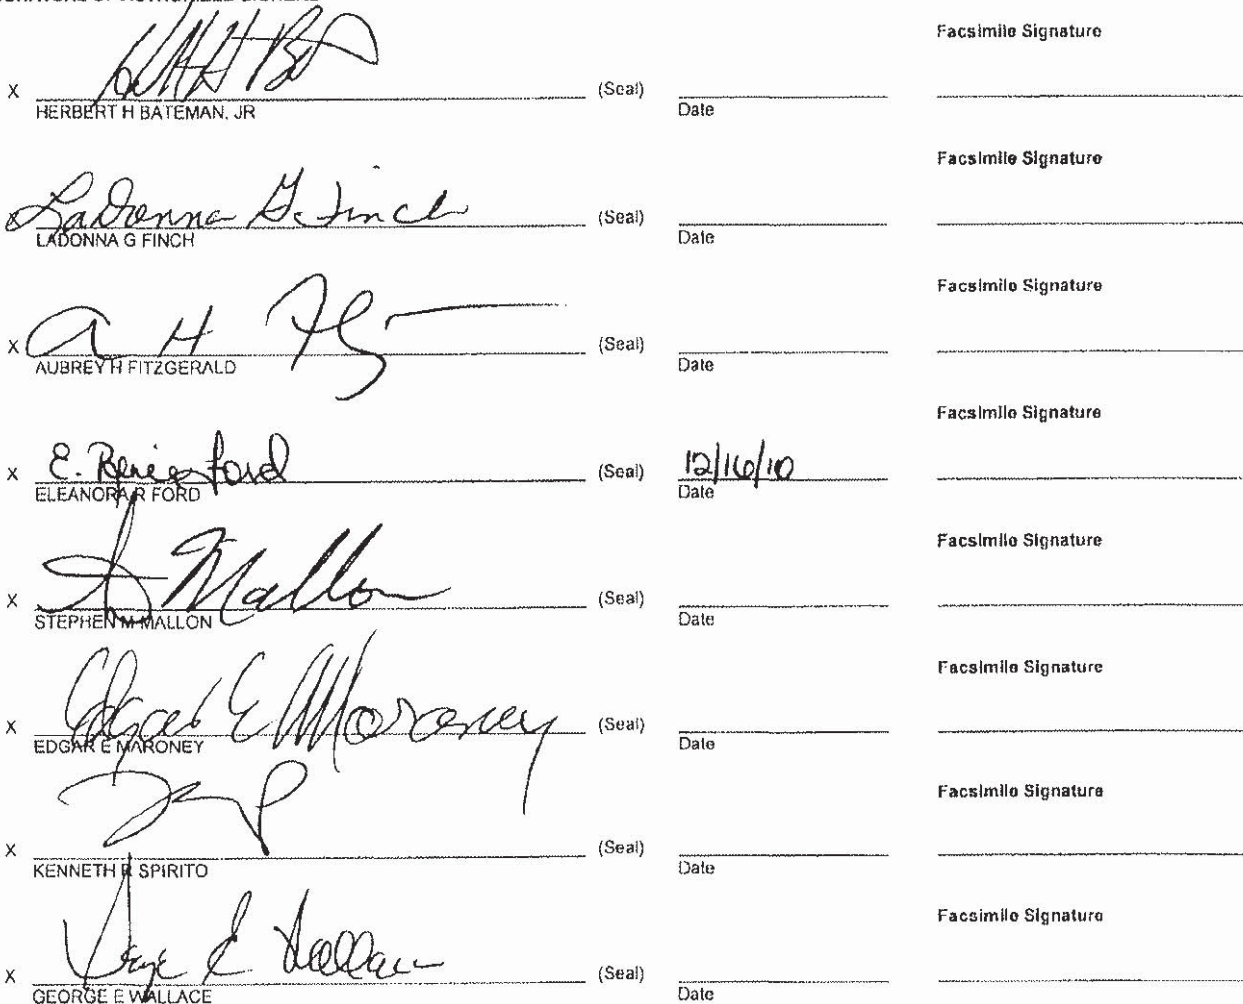 Facsimile Signature
X (Seal)
HERBERT H BATEMAN, JR Date
Facsimile Signature
X LaDonna G. Finch (Seal)
LADONNA G FINCH Date
Facsimile Signature
X A H (Seal)
AUBREY H FITZGERALD Date
Facsimile Signature
X E. Renee Ford (Seal) 12/16/10
ELEANORA R FORD Date
Facsimile Signature
X S Mallon (Seal)
STEPHEN M MALLON Date
Facsimile Signature
X Edgar E Maroney (Seal)
EDGAR E MARONEY Date
Facsimile Signature
X (Seal)
KENNETH R SPIRITO Date
Facsimile Signature
X George E Wallace (Seal)
GEORGE E WALLACE Date